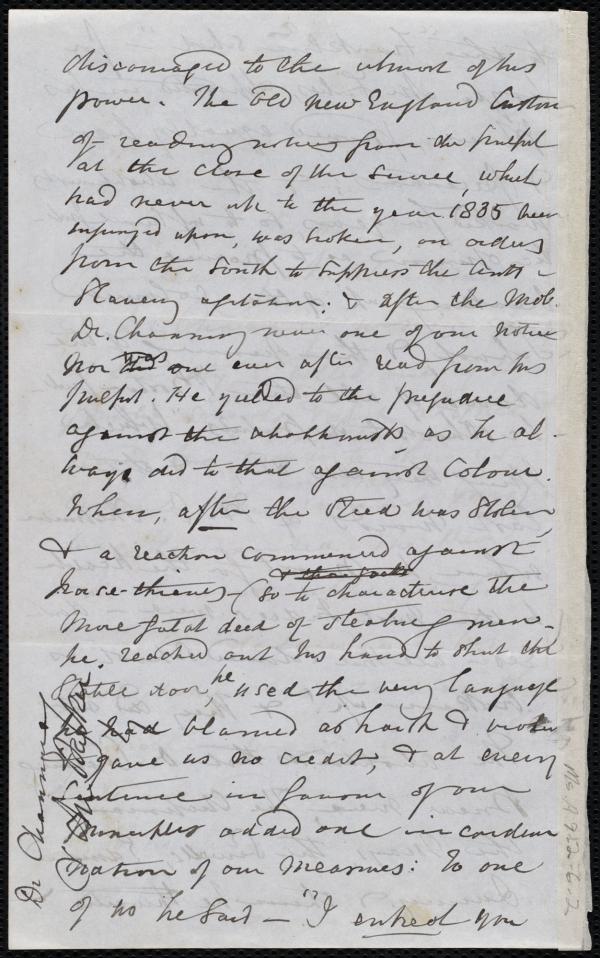 discouraged to the utmost of his
power. The Old New England Custom
of reading notices from the pulpit
at the close of the service, which
had never up to the year 1835 been
infringed upon, was broken, on orders
from the South to suppress the Anti-
Slavery agitation: & after the Mob
Dr. Channing never one of our notices
nor was one ever after read from his
pulpit. He yielded to the prejudice
against the abolitionists as he al-
ways did to that against Colour.
When, after the Steed was Stolen,
& a reaction commenced against
horse-thieves – (so to characterise the
more fatal deed of stealing men –
he reached out his hand to shut the
Stable door, he used the very language
he had blamed as harsh & violent
gave us no credit, & at every
sentence in favour of our
principles added one in condem-
nation of our measures: To one
of us he said – "I entreat you
Dr Channing
Ms.A.9.2.6.2